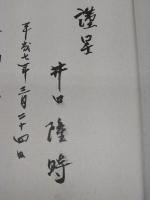 謹呈
井口隆時
平成七年三月二十四日